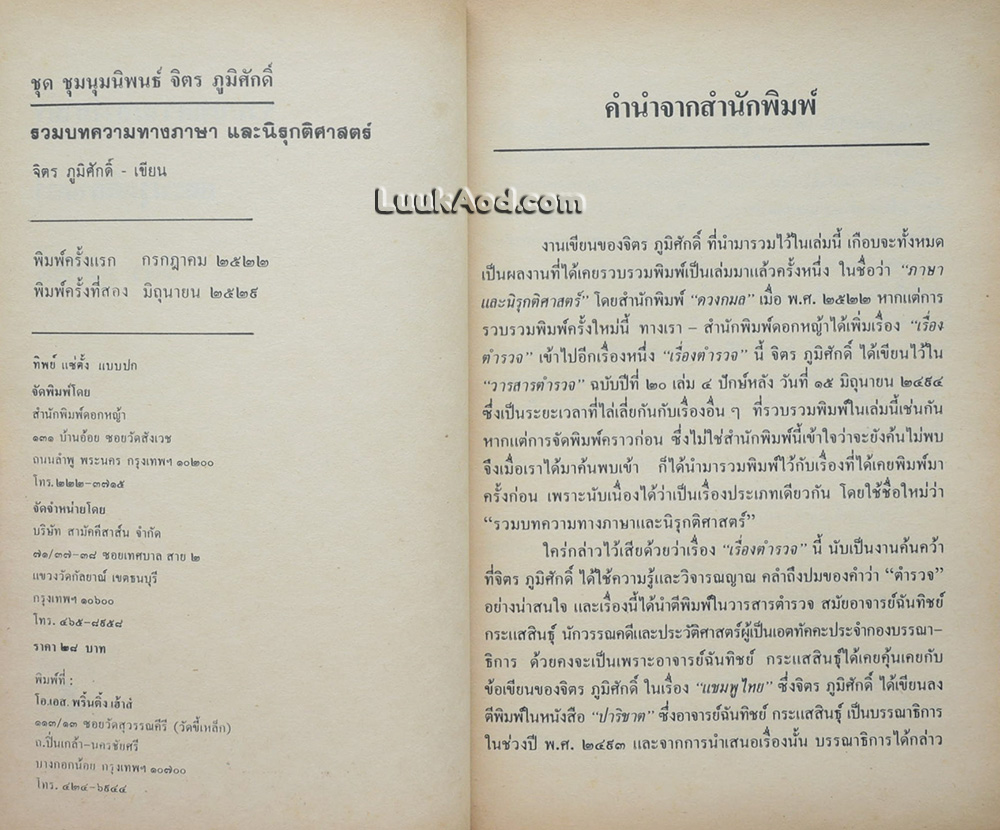 ชุด ชุมนุมนิพนธ์ จิตร ภูมิศักดิ์
รวมบทความทางภาษา และนิรุกติศาสตร์
จิตร ภูมิศักดิ์ - เขียน
พิมพ์ครั้งแรก กรกฎาคม ๒๕๒๒
พิมพ์ครั้งที่สอง มิถุนายน ๒๕๒๙
ทิพย์ แซ่ตั้ง แบบปก
จัดพิมพ์โดย
สำนักพิมพ์ดอกหญ้า
๑๓๑ บ้านอ้อย ซอยวัดสังเวช
ถนนลำพู พระนคร กรุงเทพฯ ๑๐๒๐๐
โทร.๒๒๒-๓๗๑๕
จัดจำหน่ายโดย
บริษัท สามัคคีสาส์น จำกัด
๗๑/๓๗-๓๘ ซอยเทศบาล สาย ๒
แขวงวัดกัลยาณ์ เขตธนบุรี
กรุงเทพฯ ๑๐๖๐๐
โทร. ๔๖๕-๘๙๕๘
ราคา ๒๘ บาท
พิมพ์ที่ :
โอ.เอส. พริ้นติ้ง เฮ้าส์
๑๑๓/๑๓ ซอยวัดสุวรรณคีรี (วัดขี้เหล็ก)
ถ.ปิ่นเกล้า-นครชัยศรี
บางกอกน้อย กรุงเทพฯ ๑๐๗๐๐
โทร. ๔๒๔-๖๙๔๔
LuukAod.com
คำนำจากสำนักพิมพ์
งานเขียนของจิตร ภูมิศักดิ์ ที่นำมารวมไว้ในเล่มนี้ เกือบจะทั้งหมด
เป็นผลงานที่ได้เคยรวบรวมพิมพ์เป็นเล่มมาแล้วครั้งหนึ่ง ในชื่อว่า "ภาษา
และนิรุกติศาสตร์" โดยสำนักพิมพ์ "ดวงกมล" เมื่อ พ.ศ. ๒๕๒๒ หากแต่การ
รวบรวมพิมพ์ครั้งใหม่นี้ ทางเรา – สำนักพิมพ์ดอกหญ้าได้เพิ่มเรื่อง "เรื่อง
ตำรวจ" เข้าไปอีกเรื่องหนึ่ง "เรื่องตำรวจ" นี้ จิตร ภูมิศักดิ์ ได้เขียนไว้ใน
"วารสารตำรวจ" ฉบับปีที่ ๒๐ เล่ม ๔ ปักษ์หลัง วันที่ ๑๕ มิถุนายน ๒๔๙๔
ซึ่งเป็นระยะเวลาที่ไล่เลี่ยกันกับเรื่องอื่น ๆ ที่รวบรวมพิมพ์ในเล่มนี้เช่นกัน
หากแต่การจัดพิมพ์คราวก่อน ซึ่งไม่ใช่สำนักพิมพ์นี้เข้าใจว่าจะยังค้นไม่พบ
จึงเมื่อเราได้มาค้นพบเข้า ก็ได้นำมารวมพิมพ์ไว้กับเรื่องที่ได้เคยพิมพ์มา
ครั้งก่อน เพราะนับเนื่องได้ว่าเป็นเรื่องประเภทเดียวกัน โดยใช้ชื่อใหม่ว่า
"รวมบทความทางภาษาและนิรุกติศาสตร์"
ใคร่กล่าวไว้เสียด้วยว่าเรื่อง "เรื่องตำรวจ" นี้ นับเป็นงานค้นคว้า
ที่จิตร ภูมิศักดิ์ ได้ใช้ความรู้และวิจารณญาณ คลำถึงปมของคำว่า "ตำรวจ"
อย่างน่าสนใจ และเรื่องนี้ได้นำตีพิมพ์ในวารสารตำรวจ สมัยอาจารย์ฉันทิชย์
กระแสสินธุ์ นักวรรณคดีและประวัติศาสตร์ผู้เป็นเอตทัคคะประจำกองบรรณา-
ธิการ ด้วยคงจะเป็นเพราะอาจารย์ฉันทิชย์ กระแสสินธุ์ได้เคยคุ้นเคยกับ
ข้อเขียนของจิตร ภูมิศักดิ์ ในเรื่อง "แซมพูไทย" ซึ่งจิตร ภูมิศักดิ์ ได้เขียนลง
ตีพิมพ์ในหนังสือ "ปาริชาต" ซึ่งอาจารย์ฉันทิชย์ กระแสสินธุ์ เป็นบรรณาธิการ
ในช่วงปี พ.ศ. ๒๔๙๓ และจากการนำเสนอเรื่องนั้น บรรณาธิการได้กล่าว